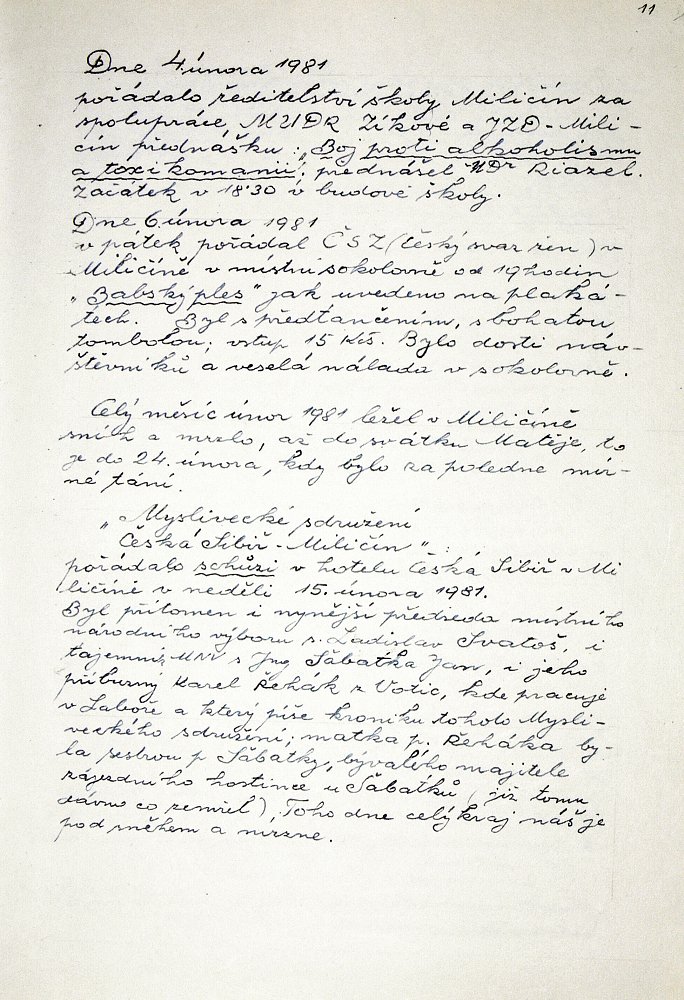 11
Dne 4. února 1981
pořádalo ředitelství školy Miličín za
spolupráce MUDR Zíkové a JZD - Mili-
čín přednášku: „Boj proti alkoholismu
a toxikomanii", přednášel MDr Riazel.
Začátek v 18'30 v budově školy.
Dne 6. února 1981
v pátek pořádal ČSŽ (Český svaz žen) v
Miličíně v místní sokolovně od 19 hodin
„Babský ples" jak uvedeno na plaká-
tech. Byl s předtančením, s bohatou
tombolou; vstup 15 Kčs. Bylo dosti náv-
štěvníků a veselá nálada v sokolovně.
Celý měsíc únor 1981 ležel v Miličíně
sníh a mrzlo, až do svátku Matěje, to
je do 24. února, kdy bylo za poledne mír-
né tání.
„Myslivecké sdružení
Česká Sibiř - Miličín":
pořádalo schůzi v hotelu Česká Sibiř v Mi
ličíně v neděli 15. února 1981.
Byl přítomen i nynější předseda místního
národního výboru s. Ladislav Svatoš, i
tajemník MNV s Ing Šabatka Jan, i jeho
příbuzný Karel Řehák z Votic, kde pracuje
v Laboře a který píše kroniku tohoto Mysli-
veckého sdružení; matka p. Řeháka by-
la sestrou p Šabatky, bývalého majitele
zájezdního hostince u Šabatků (již tomu
dávno co zemřel), Toho dne celý kraj náš je
pod sněhem a mrzne.